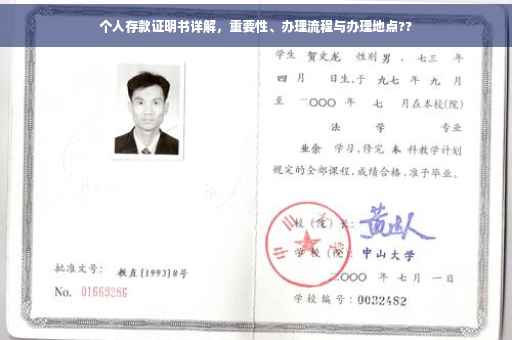 个人存款证明书详解，重要性、办理流程与办理地点??
学生 贺文龙 性别 男 、七三 年
四 月 日生,于 九七 年 九 月
至 二〇〇〇 年 七 月在本校(院)
法 学 专业
业余 学习,修完 本 科教学计划
规定的全部课程,成绩合格,准予毕业。
校 (院) 长:
学 校 (院): 中山大学
二〇〇〇 年 七 月 一 日
学校编号: 0032482
批准文号: 教直[1993]8号
No. 01669286